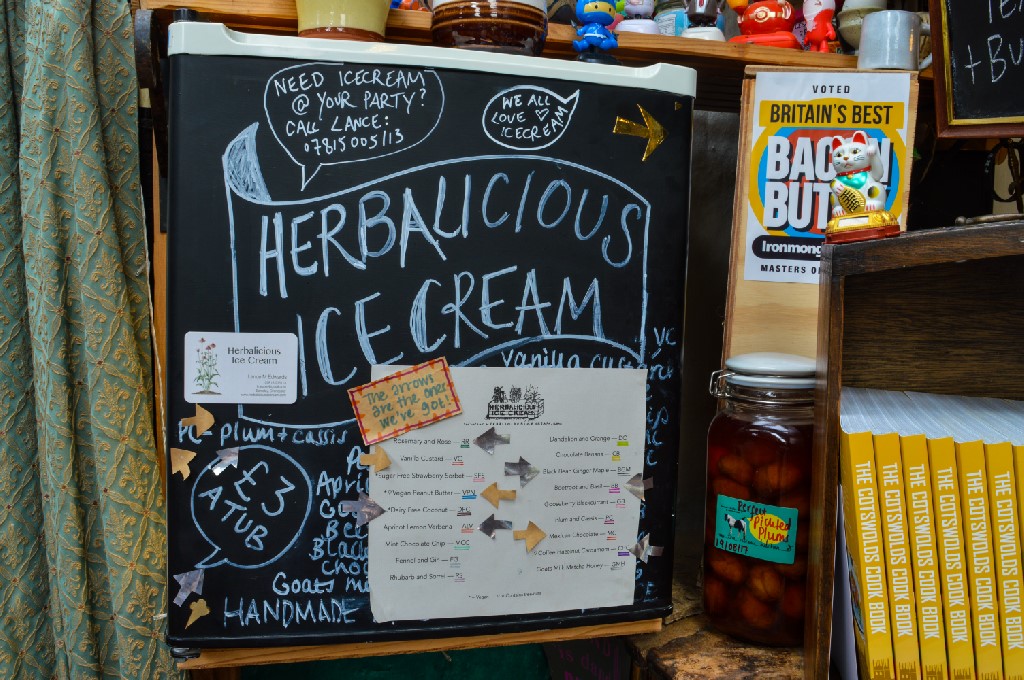 NEED ICECREAM
@ YOUR PARTY?
CALL LANCE:
07815005113
WE ALL
LOVE
ICECREAM
HERBALICIOUS
ICE CREAM
vanilla
VC
Herbalicious
Ice Cream
The arrows
are the ones
we've got!
HERBALICIOUS
ICE CREAM
Rosemary and Rose
Vanilla Custard — VC
Sugar Free Strawberry Sorbet
Vegan Peanut Butter
Dairy Free Coconut
Apricot Lemon Verbena
Mint Chocolate Chip — MCC
Fennel and Gin
Rhubarb and Sorrel — RS
Dandelion and Orange — DO
Chocolate Banana — CB
Black Bean Ginger Maple — BGM
Beetroot and Basil
Gooseberry Blackcurrant
Plum and Cassis — PC
Mexican Chocolate — MC
Coffee Hazelnut Cardamom
Goats Milk Matcha Honey — GMH
PC - plum + cassis
£3
A TUB
Goats
HANDMADE
VOTED
BRITAIN'S BEST
BACON
BUT
Ironmong
MASTERS O
perfect
pickled
plums
19/08/17
THE COTSWOLDS COOK BOOK
THE COTSWOLDS COOK BOOK
THE COTSWOLDS COOK BOOK
THE COTSWOLDS COOK BOOK
THE COTSWOLDS COOK BOOK
THE COTSWOLDS COOK BOOK
+ Bu